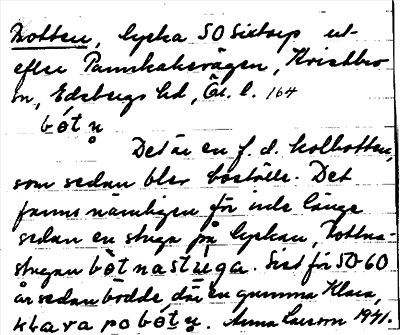 Botten, lycka SO Sixtorp ut-
efter Pannkaksvägen, Kvistbro
sn, Edsbergs hd, Ör. l. 164
bót n̥
Det är en f. d. kolbotten,
som sedan blev boställe. Det
fanns nämligen för inte länge
sedan en stuga på lyckan, Bottna-
stugan bòtnastúga. Sist för 50-60
år sedan bodde där en gumma Klara,
klara po bótn̥. Anna Larsson 1941.